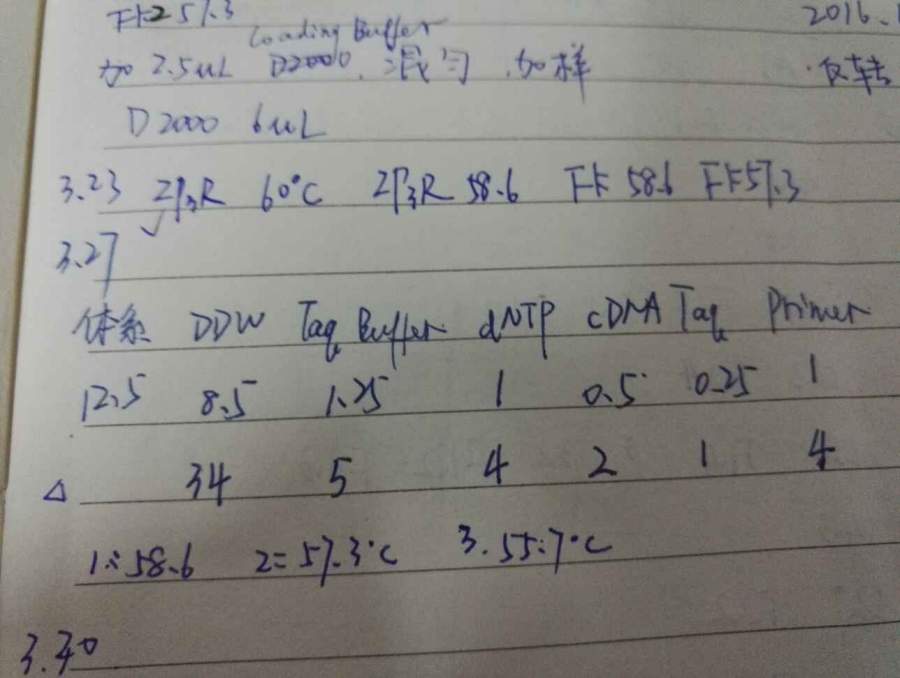 57.3 2016.
Loading Buffer
加 2.5uL D2000, 混匀, 加样 反转
D2000 6uL
3.23 ZP3R 60°C ZP3R 58.6 58.6 57.3
3.27 ✓
体系 DDW Taq Buffer dNTP cDNA Taq Primer
12.5 8.5 1.25 1 0.5 0.25 1
△ 34 5 4 2 1 4
1: 58.6 2: 57.3°C 3. 55.7°C
3.30